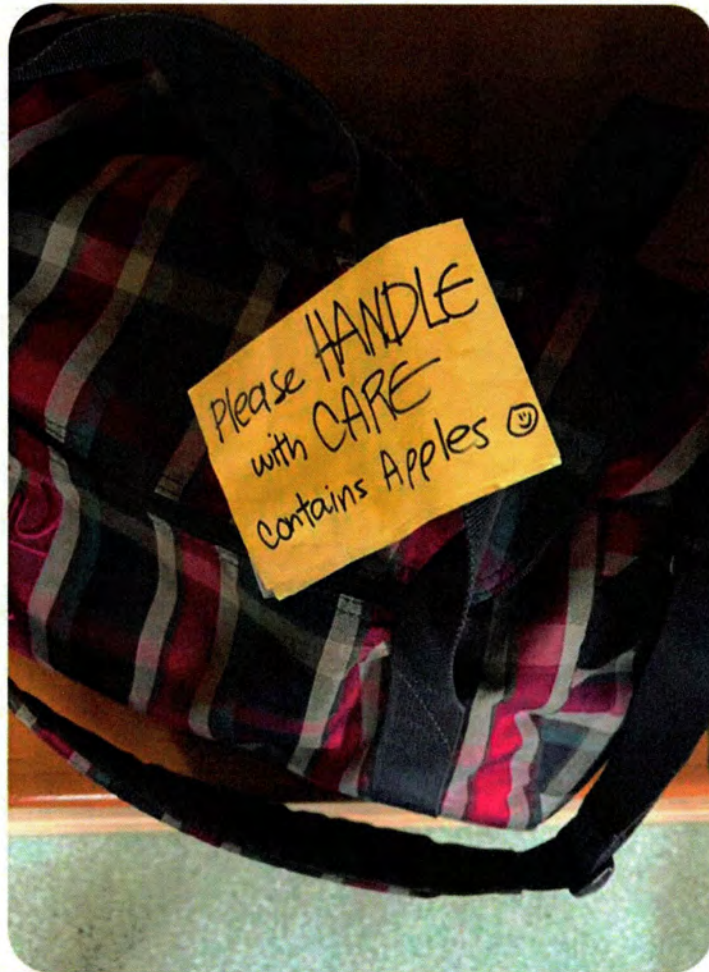 Please HANDLE
with CARE
contains Apples ☺